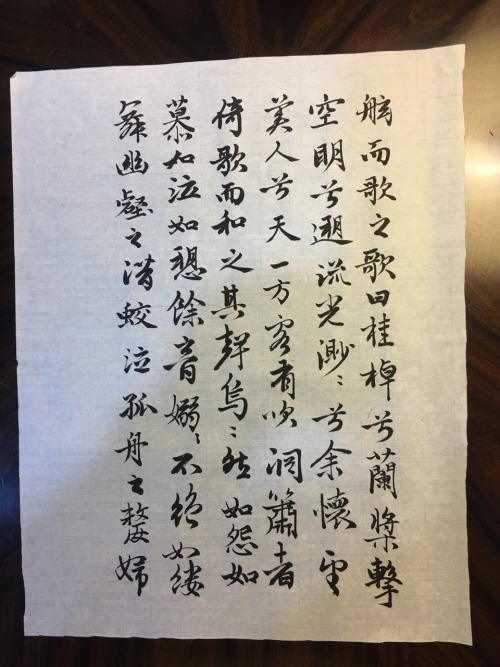 舷而歌之歌曰桂棹兮蘭槳擊
空明兮遡流光渺〻兮余懷望
美人兮天一方客有吹洞簫者
倚歌而和之其聲烏〻然如怨如
慕如泣如愬餘音嫋〻不絕如縷
舞幽壑之潛蛟泣孤舟之嫠婦